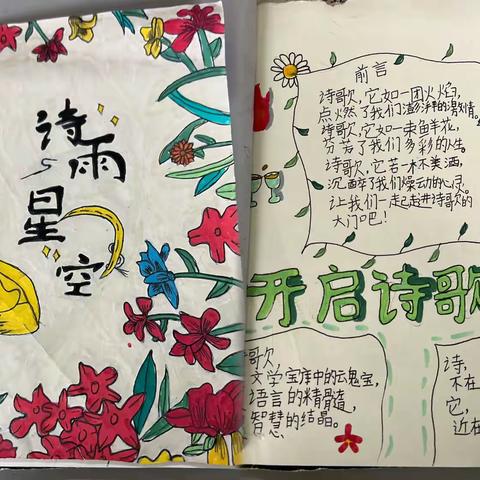 诗雨
星空
前言
诗歌,它如一团火焰,
点燃了我们澎湃的激情。
诗歌,它如一束鲜花,
芬芳了我们多彩的人生。
诗歌,它若一杯美酒,
沉醉了我们燥动的心灵。
让我们一起走进诗歌的
大门吧!
开启诗歌
歌,
文学宝库中的瑰宝,
语言的精髓,
智慧的结晶。
诗,
不在
它,
近在